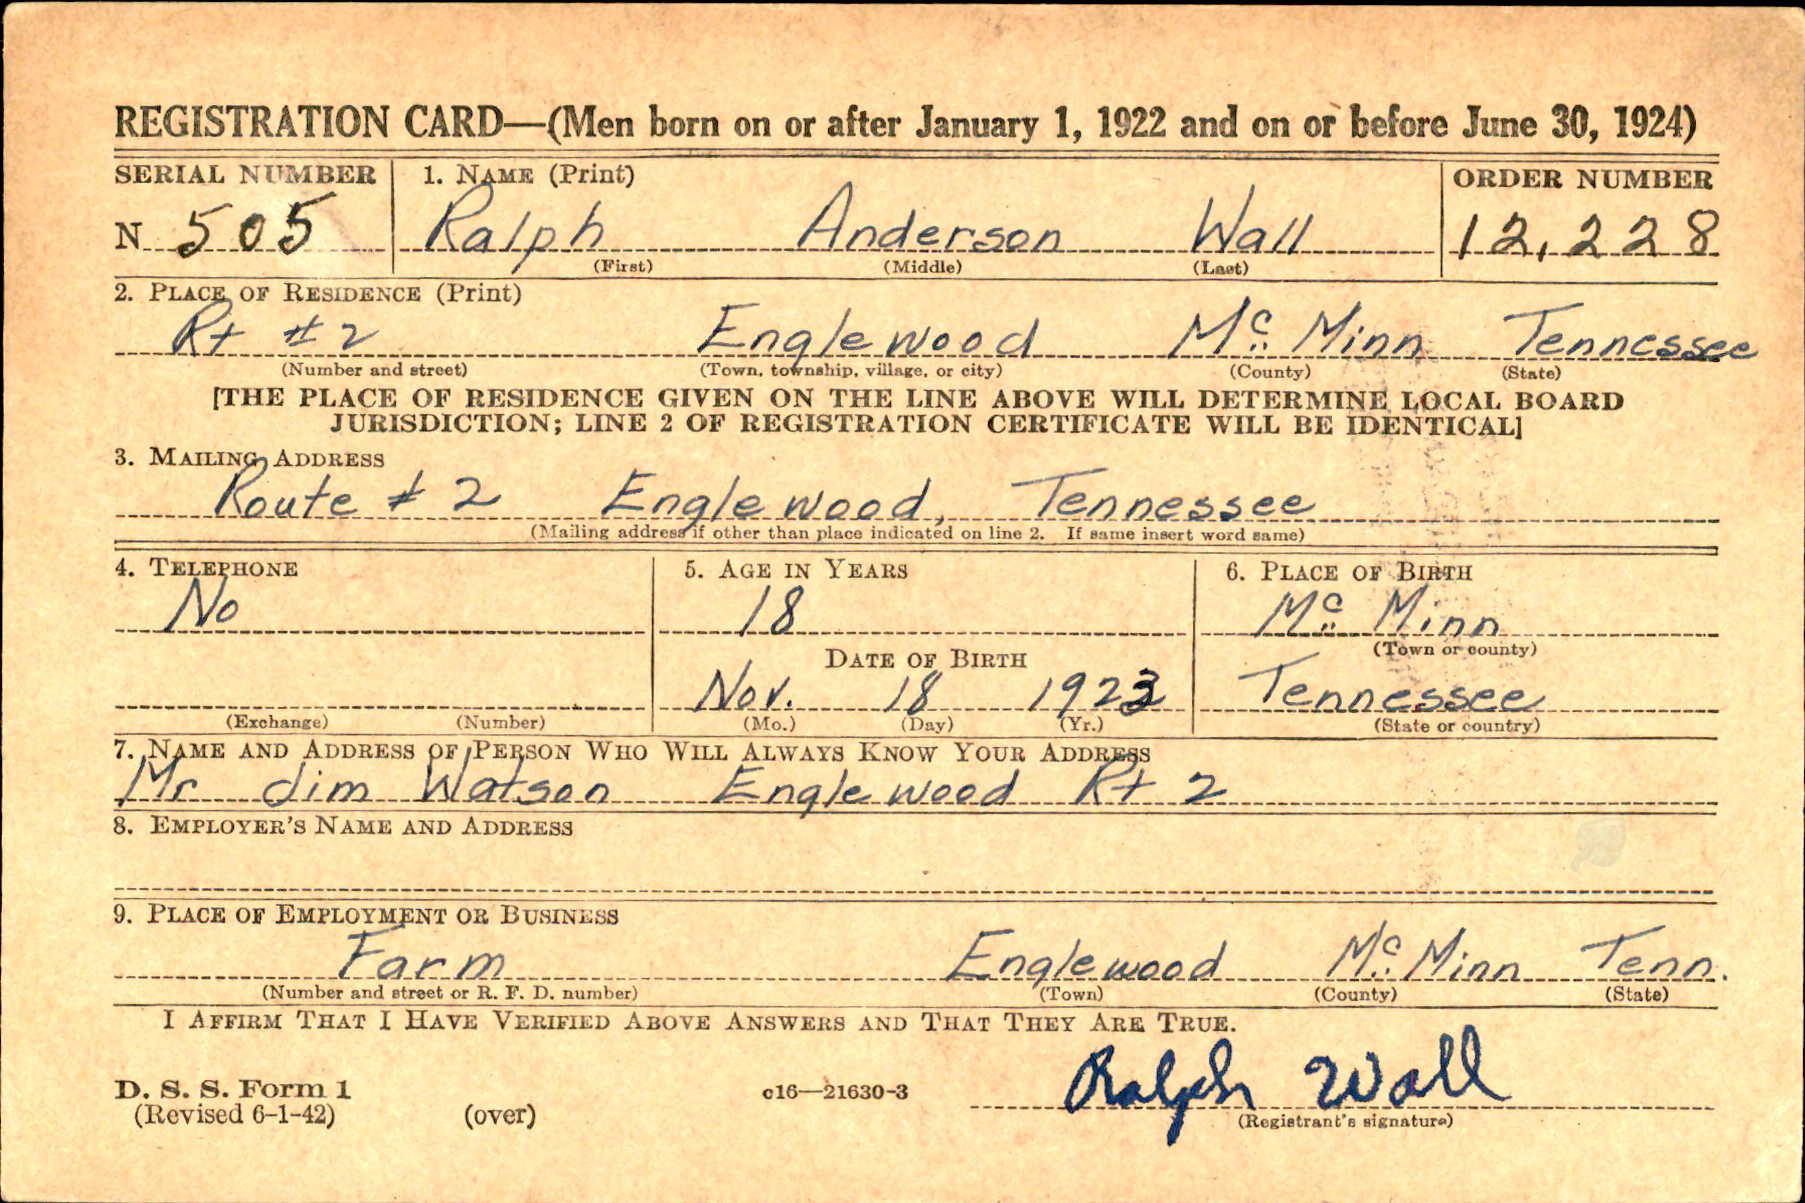 REGISTRATION CARD—(Men born on or after January 1, 1922 and on or before June 30, 1924)
SERIAL NUMBER 1. NAME (Print) ORDER NUMBER
N 505 Ralph Anderson Wall 12,228
(First) (Middle) (Last)
2. PLACE OF RESIDENCE (Print)
Rt #2 Englewood Mc Minn Tennessee
(Number and street) (Town, township, village, or city) (County) (State)
[THE PLACE OF RESIDENCE GIVEN ON THE LINE ABOVE WILL DETERMINE LOCAL BOARD
JURISDICTION; LINE 2 OF REGISTRATION CERTIFICATE WILL BE IDENTICAL]
3. MAILING ADDRESS
Route #2 Englewood, Tennessee
(Mailing address if other than place indicated on line 2. If same insert word same)
4. TELEPHONE 5. AGE IN YEARS 6. PLACE OF BIRTH
No 18 Mc Minn
(Town or county)
DATE OF BIRTH
Nov. 18 1923 Tennessee
(Exchange) (Number) (Mo.) (Day) (Yr.) (State or country)
7. NAME AND ADDRESS OF PERSON WHO WILL ALWAYS KNOW YOUR ADDRESS
Mr Jim Watson Englewood Rt 2
8. EMPLOYER'S NAME AND ADDRESS
9. PLACE OF EMPLOYMENT OR BUSINESS
Farm Englewood Mc Minn Tenn.
(Number and street or R. F. D. number) (Town) (County) (State)
I AFFIRM THAT I HAVE VERIFIED ABOVE ANSWERS AND THAT THEY ARE TRUE.
Ralph Wall
D. S. S. Form 1 c16—21630-3
(Revised 6-1-42) (over) (Registrant's signature)